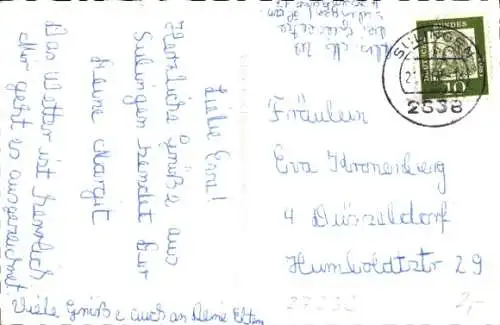 Liebe Eva!
Herzliche Grüße aus
Sulingen sendet Eur
Deine Margit
Das Wetter ist herrlich
Mir geht es ausgezeichnet
Viele Grüße auch an Deine Eltern
SULINGEN
2838
DEUTSCHE BUNDES
10
Fräulein
Eva Kronenberg
4 Düsseldorf
Humboldtstr 29
2,-